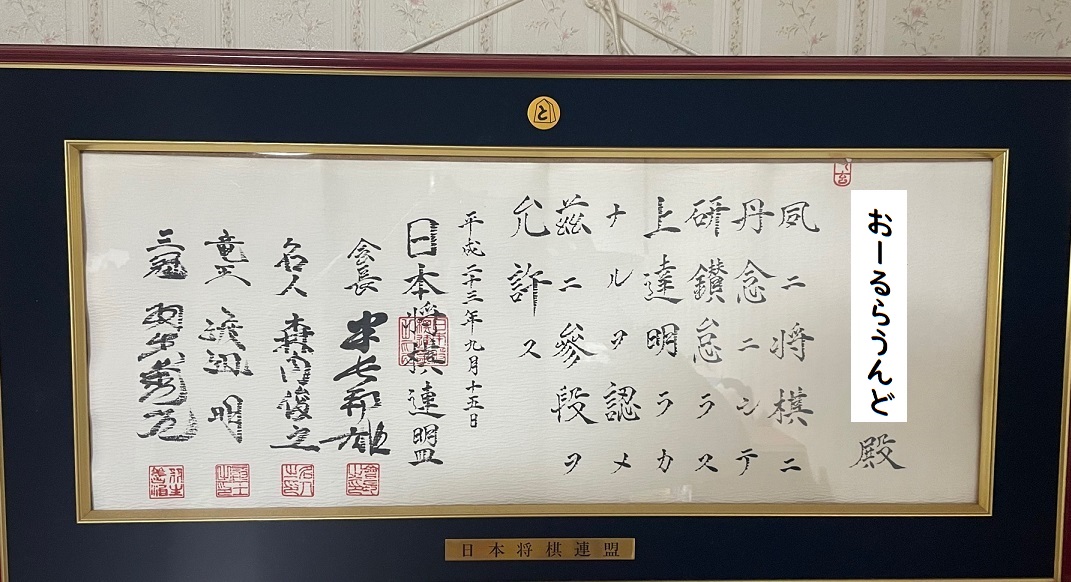 と
おーるらうんど 殿
夙ニ将棋ニ
丹念ニシテ
研鑽怠ラス
上達明ラカ
ナルヲ認メ
茲ニ參段ヲ
允許ス
平成二十三年九月十五日
日本将棋連盟
会長 米長邦雄
名人 森内俊之
竜王 渡辺明
三冠 羽生善治
日本将棋連盟